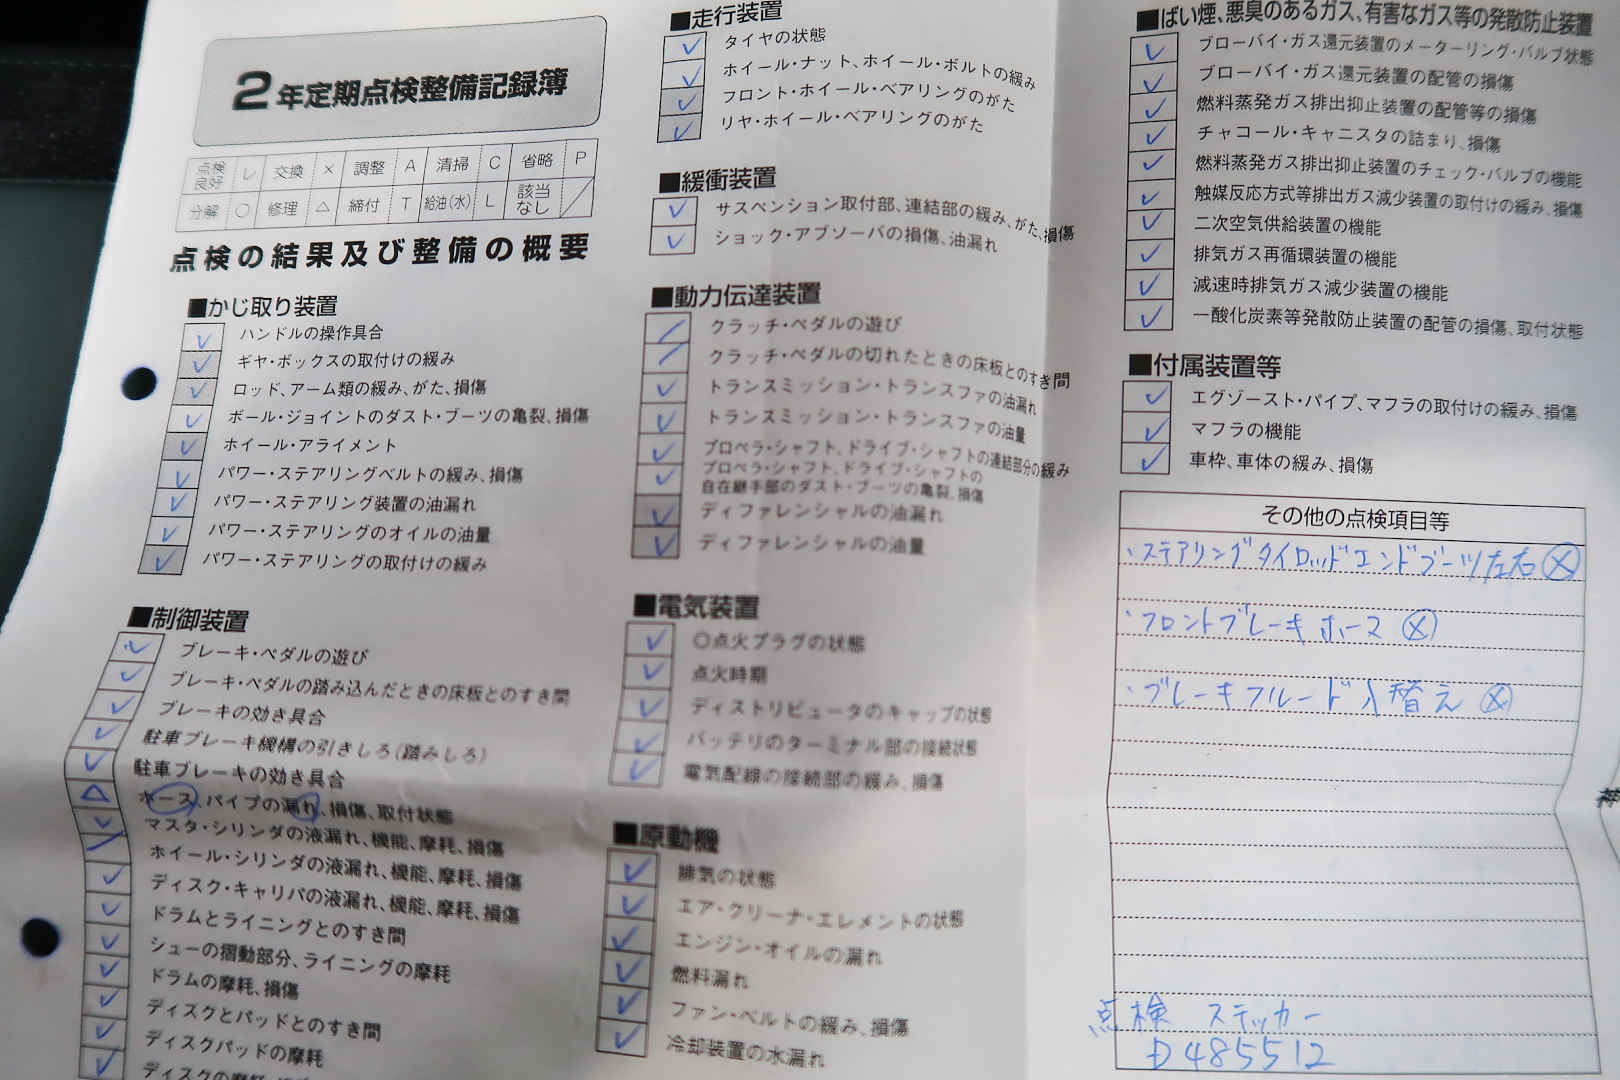 2年定期点検整備記録簿
点検良好 レ 交換 × 調整 A 清掃 C 省略 P
分解 ○ 修理 △ 締付 T 給油(水) L 該当なし ／
点検の結果及び整備の概要
■かじ取り装置
ハンドルの操作具合
ギヤ・ボックスの取付けの緩み
ロッド、アーム類の緩み、がた、損傷
ボール・ジョイントのダスト・ブーツの亀裂、損傷
ホイール・アライメント
パワー・ステアリングベルトの緩み、損傷
パワー・ステアリング装置の油漏れ
パワー・ステアリングのオイルの油量
パワー・ステアリングの取付けの緩み
■制御装置
ブレーキ・ペダルの遊び
ブレーキ・ペダルの踏み込んだときの床板とのすき間
ブレーキの効き具合
駐車ブレーキ機構の引きしろ(踏みしろ)
駐車ブレーキの効き具合
ホース、パイプの漏れ、損傷、取付状態
マスタ・シリンダの液漏れ、機能、摩耗、損傷
ホイール・シリンダの液漏れ、機能、摩耗、損傷
ディスク・キャリパの液漏れ、機能、摩耗、損傷
ドラムとライニングとのすき間
シューの摺動部分、ライニングの摩耗
ドラムの摩耗、損傷
ディスクとパッドとのすき間
ディスクパッドの摩耗
■走行装置
タイヤの状態
ホイール・ナット、ホイール・ボルトの緩み
フロント・ホイール・ベアリングのがた
リヤ・ホイール・ベアリングのがた
■緩衝装置
サスペンション取付部、連結部の緩み、がた、損傷
ショック・アブソーバの損傷、油漏れ
■動力伝達装置
クラッチ・ペダルの遊び
クラッチ・ペダルの切れたときの床板とのすき間
トランスミッション・トランスファの油漏れ
トランスミッション・トランスファの油量
プロペラ・シャフト、ドライブ・シャフトの連結部分の緩み
プロペラ・シャフト、ドライブ・シャフトの
自在継手部のダスト・ブーツの亀裂、損傷
ディファレンシャルの油漏れ
ディファレンシャルの油量
■電気装置
○点火プラグの状態
点火時期
ディストリビュータのキャップの状態
バッテリのターミナル部の接続状態
電気配線の接続部の緩み、損傷
■原動機
排気の状態
エア・クリーナ・エレメントの状態
エンジン・オイルの漏れ
燃料漏れ
ファン・ベルトの緩み、損傷
冷却装置の水漏れ
■ばい煙、悪臭のあるガス、有害なガス等の発散防止装置
ブローバイ・ガス還元装置のメーターリング・バルブ状態
ブローバイ・ガス還元装置の配管の損傷
燃料蒸発ガス排出抑止装置の配管等の損傷
チャコール・キャニスタの詰まり、損傷
燃料蒸発ガス排出抑止装置のチェック・バルブの機能
触媒反応方式等排出ガス減少装置の取付けの緩み、損傷
二次空気供給装置の機能
排気ガス再循環装置の機能
減速時排気ガス減少装置の機能
一酸化炭素等発散防止装置の配管の損傷、取付状態
■付属装置等
エグゾースト・パイプ、マフラの取付けの緩み、損傷
マフラの機能
車枠、車体の緩み、損傷
その他の点検項目等
・ステアリングタイロッドエンドブーツ左右 ⊗
・フロントブレーキホース ⊗
・ブレーキフルード入替え ⊗
点検 ステッカー
D485512